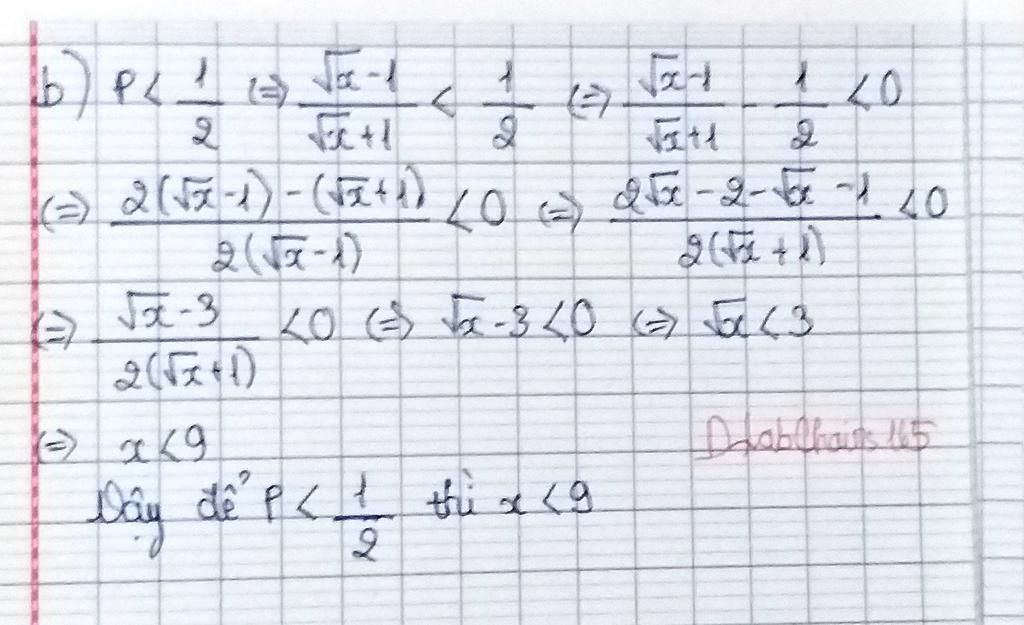 b) P < 1/2 (=) (√x - 1)/(√x + 1) < 1/2 (=) (√x - 1)/(√x + 1) - 1/2 < 0
(=) (2(√x - 1) - (√x + 1))/(2(√x - 1)) < 0 (=) (2√x - 2 - √x - 1)/(2(√x + 1)) < 0
(=) (√x - 3)/(2(√x + 1)) < 0 (=) √x - 3 < 0 (=) √x < 3
(=) x < 9
Vậy để P < 1/2 thì x < 9